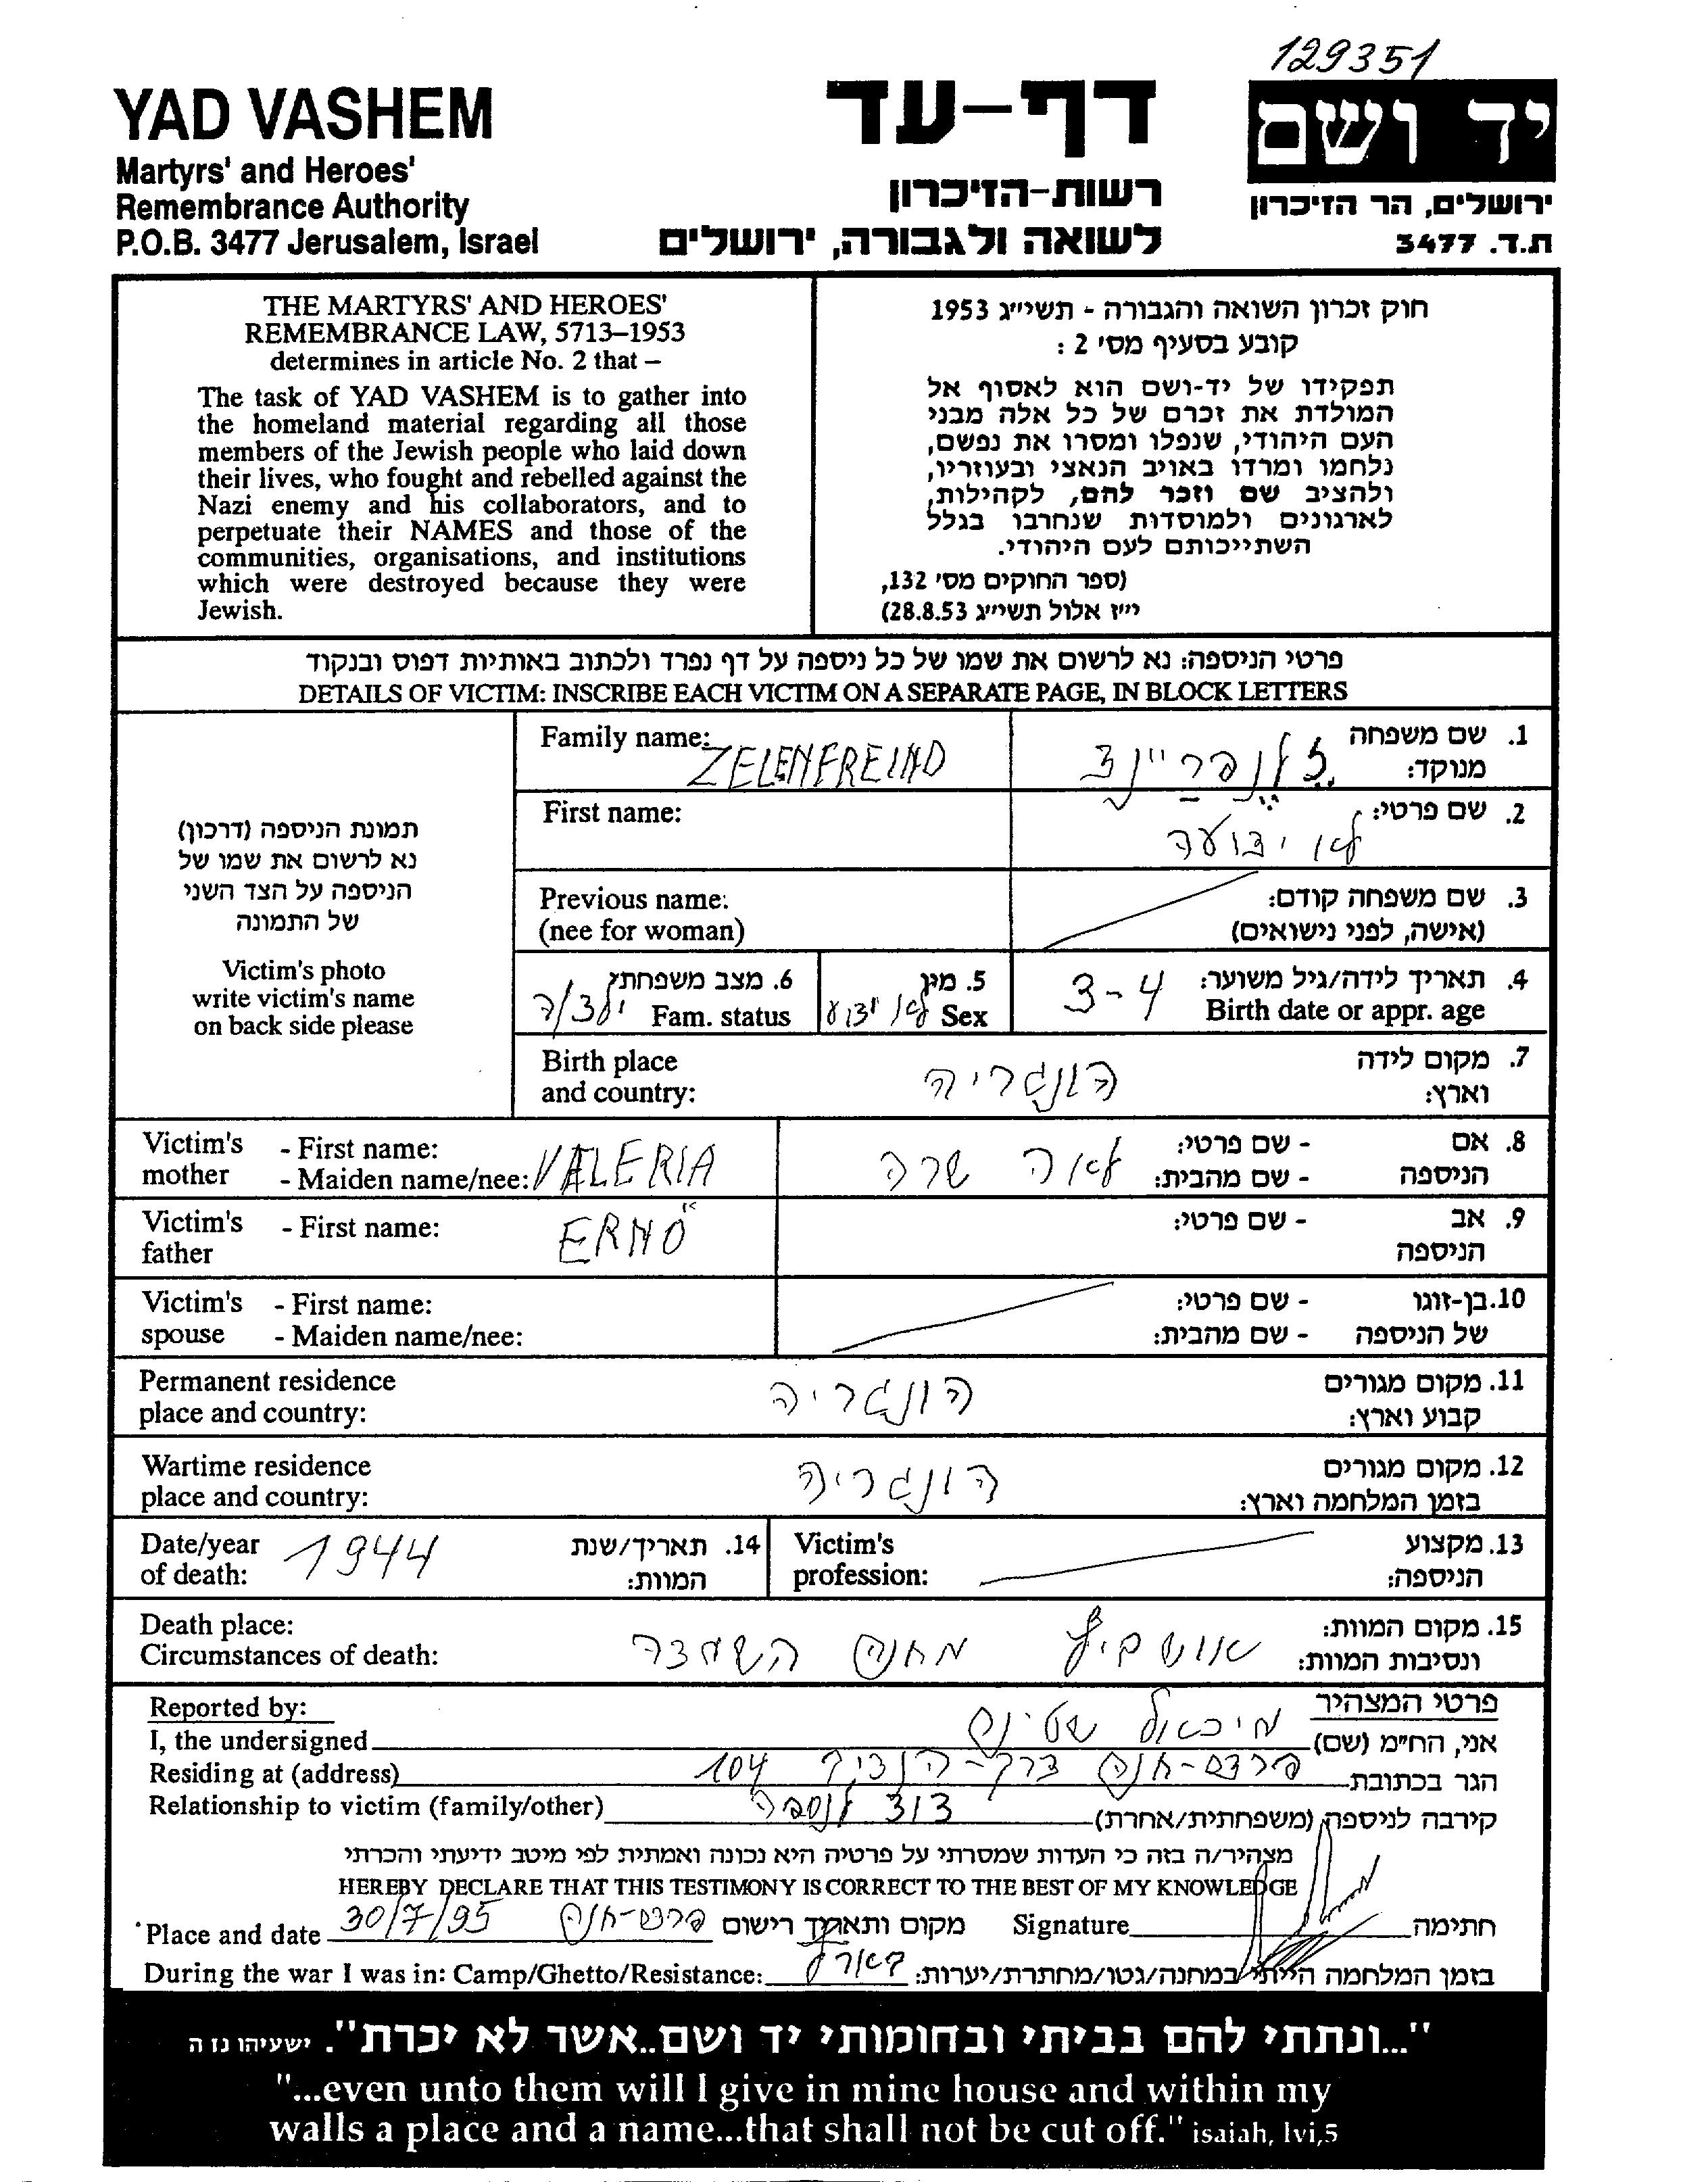 129351
YAD VASHEM
Martyrs' and Heroes'
Remembrance Authority
P.O.B. 3477 Jerusalem, Israel
דף-עד
רשות-הזיכרון
לשואה ולגבורה, ירושלים
יד ושם
ירושלים, הר הזיכרון
ת.ד. 3477
THE MARTYRS' AND HEROES'
REMEMBRANCE LAW, 5713–1953
determines in article No. 2 that –
The task of YAD VASHEM is to gather into
the homeland material regarding all those
members of the Jewish people who laid down
their lives, who fought and rebelled against the
Nazi enemy and his collaborators, and to
perpetuate their NAMES and those of the
communities, organisations, and institutions
which were destroyed because they were
Jewish.
חוק זכרון השואה והגבורה - תשי״ג 1953
קובע בסעיף מס׳ 2 :
תפקידו של יד-ושם הוא לאסוף אל
המולדת את זכרם של כל אלה מבני
העם היהודי, שנפלו ומסרו את נפשם,
נלחמו ומרדו באויב הנאצי ובעוזריו,
ולהציב שם וזכר להם, לקהילות,
לארגונים ולמוסדות שנחרבו בגלל
השתייכותם לעם היהודי.
(ספר החוקים מס׳ 132,
י״ז אלול תשי״ג 28.8.53)
פרטי הניספה: נא לרשום את שמו של כל ניספה על דף נפרד ולכתוב באותיות דפוס ובנקוד
DETAILS OF VICTIM: INSCRIBE EACH VICTIM ON A SEPARATE PAGE, IN BLOCK LETTERS
תמונת הניספה (דרכון)
נא לרשום את שמו של
הניספה על הצד השני
של התמונה
Victim's photo
write victim's name
on back side please
Family name: ZELENFREIND
1. שם משפחה
מנוקד: זלנפריינד
First name:
2. שם פרטי:
לא ידועה
Previous name:
(nee for woman)
3. שם משפחה קודם:
(אישה, לפני נישואים)
4. תאריך לידה/גיל משוער:
Birth date or appr. age 3-4
5. מין
Sex לא ידוע
6. מצב משפחתי
Fam. status ילד/ה
Birth place
and country:
7. מקום לידה
וארץ: הונגריה
Victim's mother - First name:
- Maiden name/nee: VALERIA
8. אם הניספה - שם פרטי: לאה שרה
- שם מהבית:
Victim's father - First name: ERNŐ
9. אב הניספה - שם פרטי:
Victim's spouse - First name:
- Maiden name/nee:
10. בן-זוגו של הניספה - שם פרטי:
- שם מהבית:
Permanent residence
place and country:
11. מקום מגורים
קבוע וארץ: הונגריה
Wartime residence
place and country:
12. מקום מגורים
בזמן המלחמה וארץ: הונגריה
Date/year
of death: 1944
14. תאריך/שנת
המוות:
Victim's
profession:
13. מקצוע
הניספה:
Death place:
Circumstances of death:
15. מקום המוות:
ונסיבות המוות: אושביץ מחנה השמדה
Reported by:
פרטי המצהיר
I, the undersigned
אני, הח״מ (שם) מיכאל
Residing at (address)
הגר בכתובת פרדס-חנה דרך-הנדיב 104
Relationship to victim (family/other)
קירבה לניספה (משפחתית/אחרת) דוד לנספה
מצהיר/ה בזה כי העדות שמסרתי על פרטיה היא נכונה ואמתית לפי מיטב ידיעתי והכרתי
HEREBY DECLARE THAT THIS TESTIMONY IS CORRECT TO THE BEST OF MY KNOWLEDGE
Place and date 30/7/95 פרדס-חנה מקום ותאריך רישום
Signature חתימה
During the war I was in: Camp/Ghetto/Resistance:
בזמן המלחמה הייתי במחנה/גטו/מחתרת/יערות:
"...ונתתי להם בביתי ובחומותי יד ושם..אשר לא יכרת". ישעיהו נז ה
"...even unto them will I give in mine house and within my
walls a place and a name...that shall not be cut off." isaiah, lvi,5